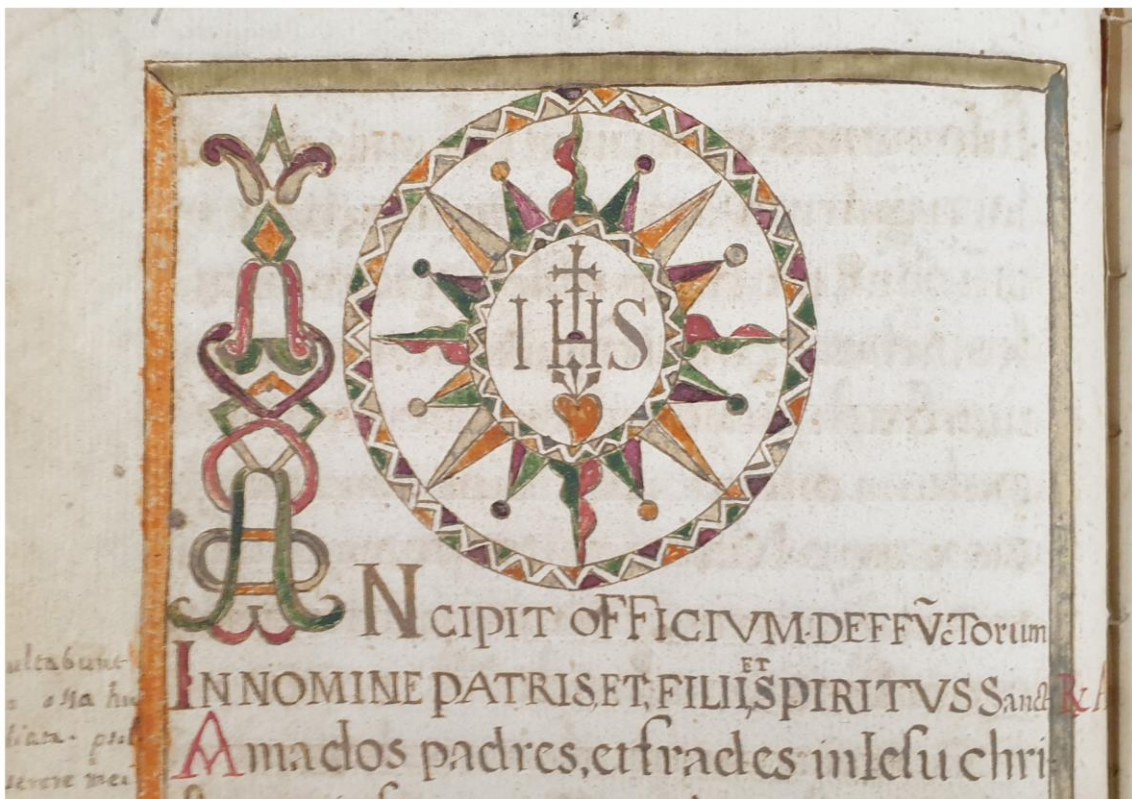 IHS
INCIPIT OFFICIVM·DEFFṼcTorum
IN NOMINE PATRIS, ET, FILII, ET SPIRITVS Sanct ℟ A
Amados padres, et frades in Iesu chri
ultabunt
ossa hu